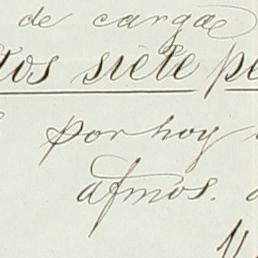 de cargae
tos siete pe
por hoy
afmos.